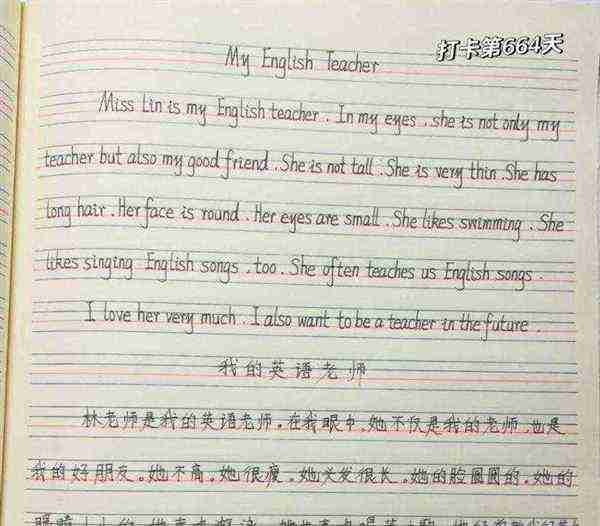 打卡第664天
My English Teacher
Miss Lin is my English teacher. In my eyes, she is not only my
teacher but also my good friend. She is not tall. She is very thin. She has
long hair. Her face is round. Her eyes are small. She likes swimming. She
likes singing English songs, too. She often teaches us English songs.
I love her very much. I also want to be a teacher in the future.
我的英语老师
林老师是我的英语老师。在我眼中,她不仅是我的老师,也是
我的好朋友。她不高。她很瘦。她头发很长。她的脸圆圆的。她的